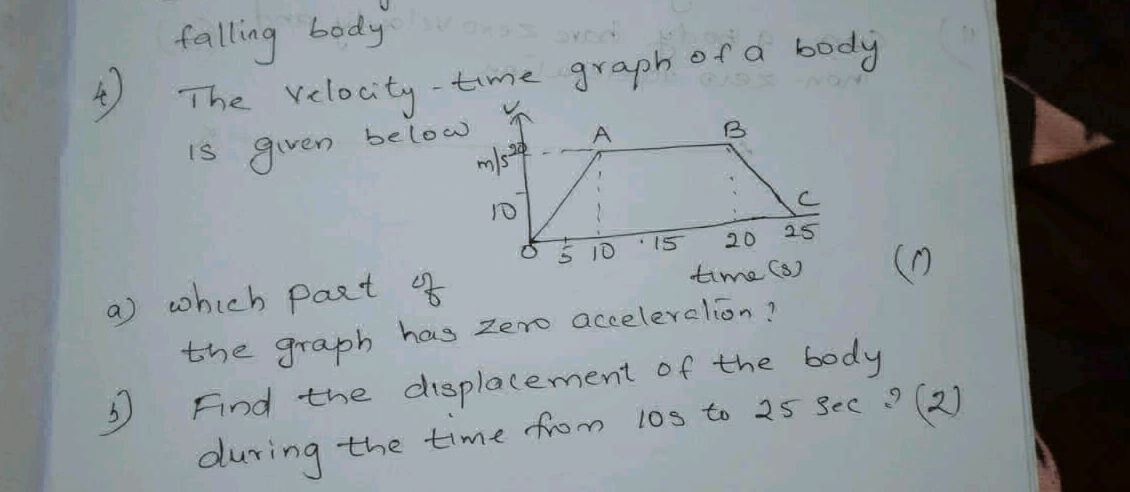 falling body
4) The velocity-time graph of a body
is given below
V
m/s 20
10
A
B
C
0 5 10 15 20 25
time (s)
(1)
a) which part of
the graph has zero acceleration?
b) Find the displacement of the body
during the time from 10s to 25 sec ? (2)